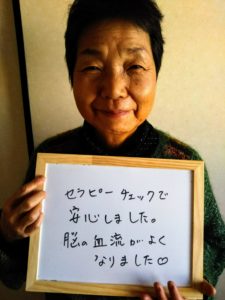 セラピーチェックで
安心しました。
脳の血流がよく
なりました♡